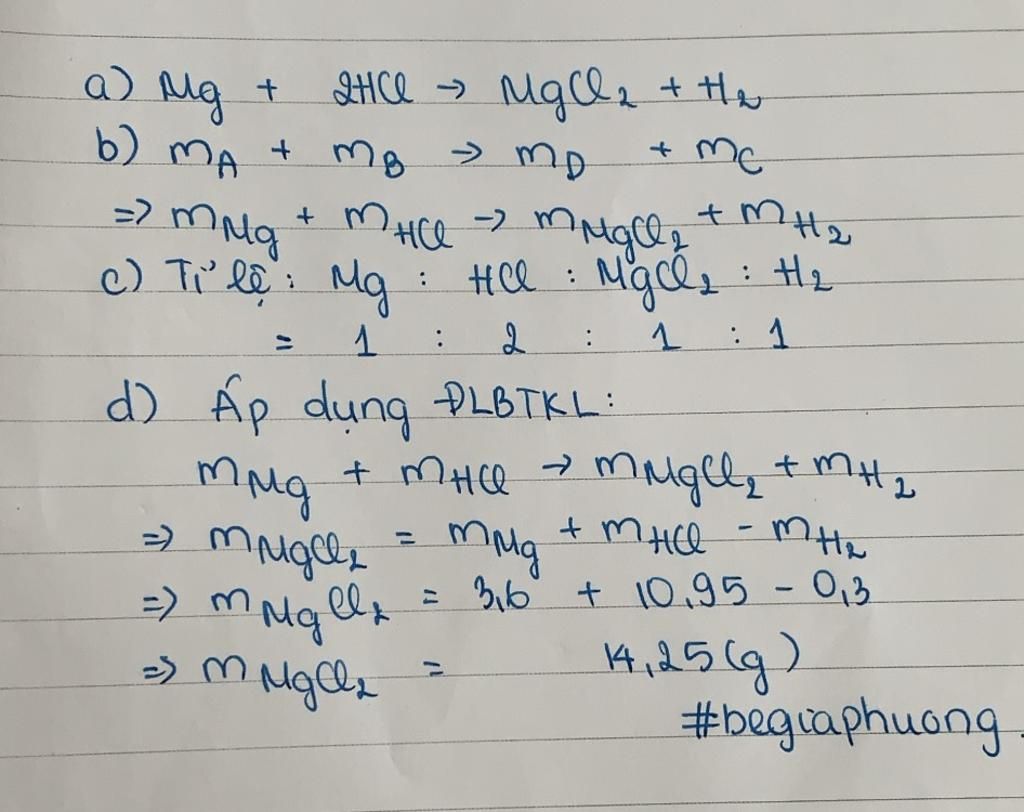 a) Mg + 2HCl → MgCl₂ + H₂
b) mA + mB → mD + mC
=> mMg + mHCl → mMgCl₂ + mH₂
c) Tỉ lệ: Mg : HCl : MgCl₂ : H₂
= 1 : 2 : 1 : 1
d) Áp dụng ĐLBTKL:
mMg + mHCl → mMgCl₂ + mH₂
=> mMgCl₂ = mMg + mHCl - mH₂
=> mMgCl₂ = 3,6 + 10,95 - 0,3
=> mMgCl₂ = 14,25 (g)
#begiaphuong